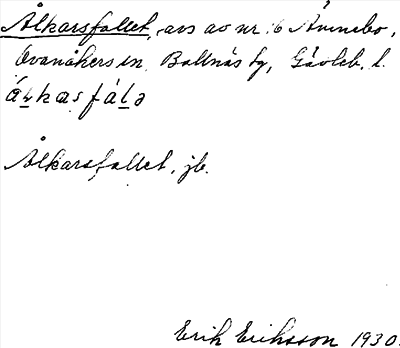 Ålkarsfallet, avs av nr 6 Ämnebo,
Ovanåkers sn. Bollnäs fg, Gävleb. l.
Ålkarsfallet, jb.
Erik Eriksson 1930.